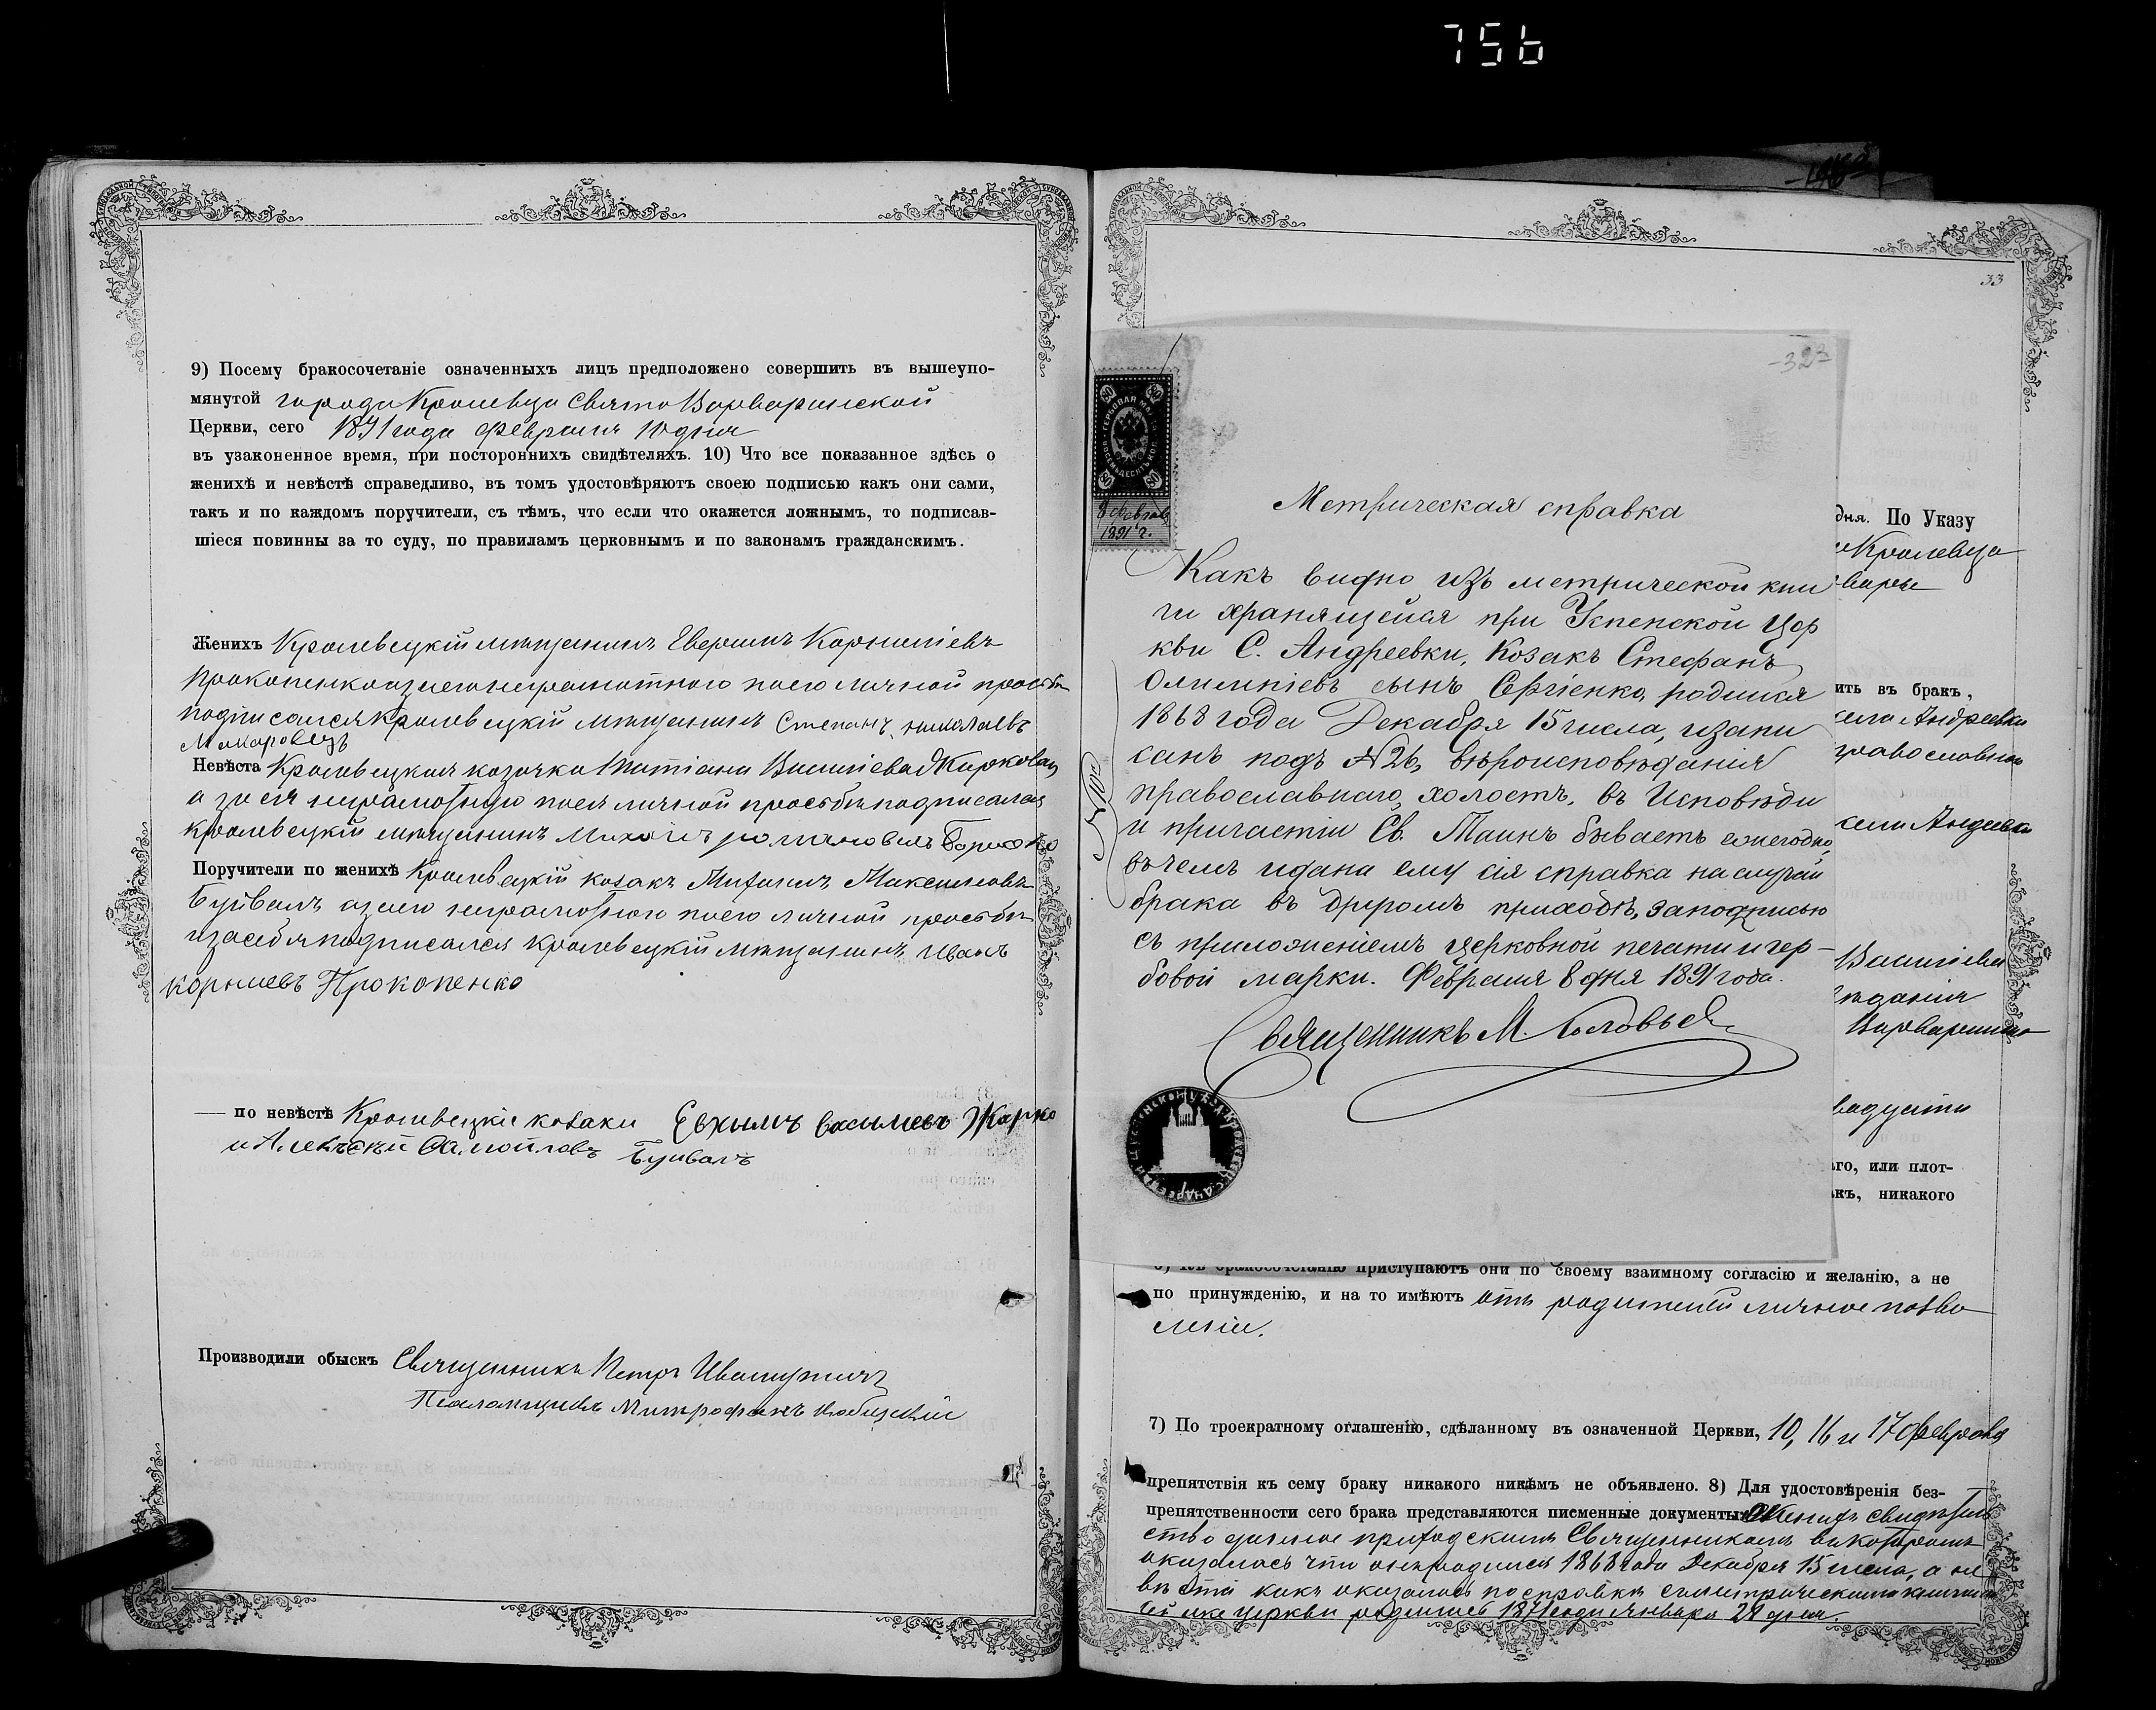 756
9) Посему бракосочетаніе означенныхъ лицъ предположено совершить въ вышеупо-
мянутой города Кролевца Свято Варваринской
Церкви, сего 1891 года Февраля 10 дня
въ узаконенное время, при постороннихъ свидѣтеляхъ. 10) Что все показанное здѣсь о
женихѣ и невѣстѣ справедливо, въ томъ удостовѣряютъ своею подписью какъ они сами,
такъ и по каждомъ поручители, съ тѣмъ, что если что окажется ложнымъ, то подписав-
шіеся повинны за то суду, по правиламъ церковнымъ и по законамъ гражданскимъ.
Женихъ Кролевецкій мѣщанинъ Корниліевъ
Прокопенко а за него неграмотного по его личной прозьбѣ
подписался Кролевецкій мѣщанинъ Степанъ николаевъ
Макаровецъ
Невѣста Кролевецкая козачка Татіана Василіева Жаркова
а за ея неграмотную по ея личной прозьбѣ подписался
Кролевецкій мѣщанинъ Михаилъ
Поручители по женихѣ Кролевецкій козакъ Максимовъ
Буйвалъ а за него неграмотного по его личной прозьбѣ
и за себя подписался Кролевецкій мѣщанинъ Иванъ
корниевъ Прокопенко
— по невѣстѣ Кролевецкіе козаки Евхымъ василиевъ Жарко
и Алексѣй Самойловъ Буйвалъ
Производили обыскъ Священникъ Петръ
Псаломщикъ Митрофанъ
33
-32
8 Февраля
1891 г.
Метрическая справка
Какъ видно изъ метрической кни
ги хранящейся при Успенской Цер
кви С. Андреевки, Козакъ Стефанъ
Олимпіевъ сынъ Сергіенко, родился
1868 года Декабря 15 числа, и запи
санъ подъ №26, вѣроисповѣданія
православнаго, холостъ, въ Исповѣди
и причастіи Св. Таинъ бываетъ ежегодно,
въ чемъ и дана ему сія справка на случай
брака въ другомъ приходѣ, за подписью
съ приложеніемъ церковной печати и гер-
бовой марки. Февраля 8 дня 1891 года.
Священникъ М. Соловьев
дня. По Указу
Кролевца
ить въ бракъ,
села Андреевки
православнаго
села Андреевки
Василіева
Варваринско
го, или плот-
акъ, никакого
приступаютъ они по своему взаимному согласію и желанію, а не
по принужденію, и на то имѣютъ отъ родителей личное позво
леніе.
7) По троекратному оглашенію, сдѣланному въ означенной Церкви, 10, 16 и 17 февраля
препятствія къ сему браку никакого никѣмъ не объявлено. 8) Для удостовѣренія без-
препятственности сего брака представляются писменные документы: Женихъ свидѣтель
ство данное приходскимъ Священникомъ въ которомъ
оказалось что онъ родился 1868 года Декабря 15 числа, а не
вѣста какъ оказалось по справкѣ съ метрическими книгами
сей же церкви родилась 1871 года Января 28 дня.